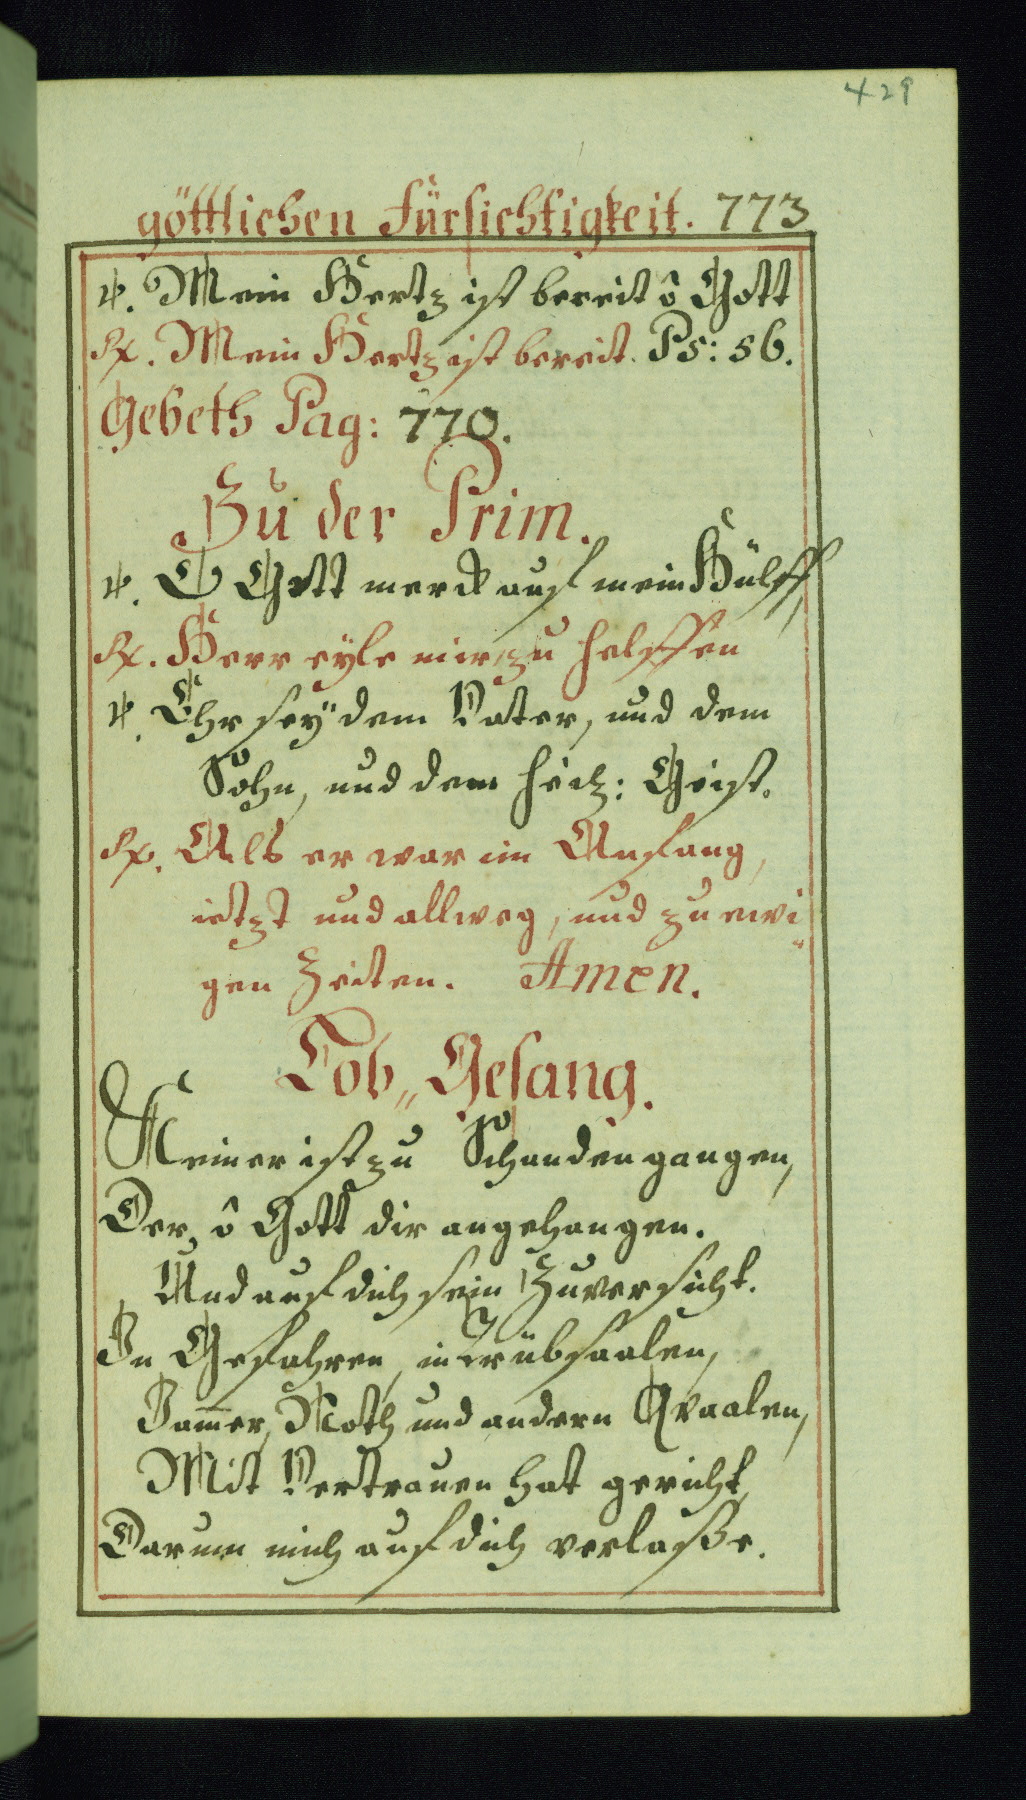 429
göttlichen Fürsichtigkeit. 773
℣. Mein Hertz ist bereit ô Gott
℟. Mein Hertz ist bereit. Ps: 56.
Gebeth Pag: 770.
Zu der Prim.
℣. O Gott merck auf mein Hülff,
℟. Herr eyle mir zu helffen
℣. Ehr seÿ dem Vater, und dem
Sohn, und dem heil: Geist.
℟. Als er war im Anfang,
ietzt und allweg, und zu ewi„
gen Zeiten. Amen.
Lob„ Gesang.
Keiner ist zu Schanden gangen,
Der, ô Gott dir angehangen.
Und auf dich sein Zuversicht.
In Gefahren, in Trübsaalen,
Jam̅er, Noth und andern Qvaalen,
Mit Vertrauen hat gericht,
Darum mich auf dich verlaße.